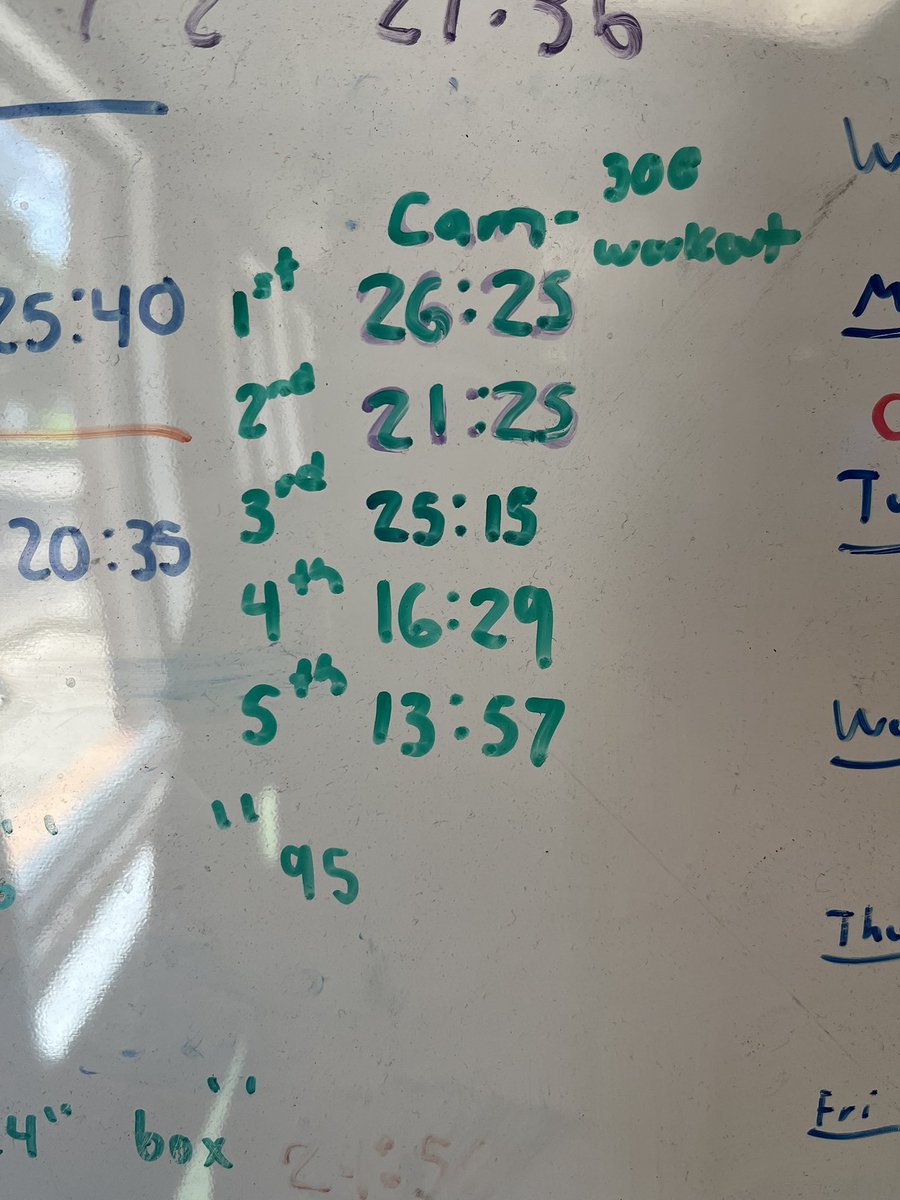 21:36
Cam- 300
workout
25:40
1st 26:25
2nd 21:25
3rd 25:15
20:35
4th 16:29
5th 13:57
"
95
Thu
Fri
4" box"